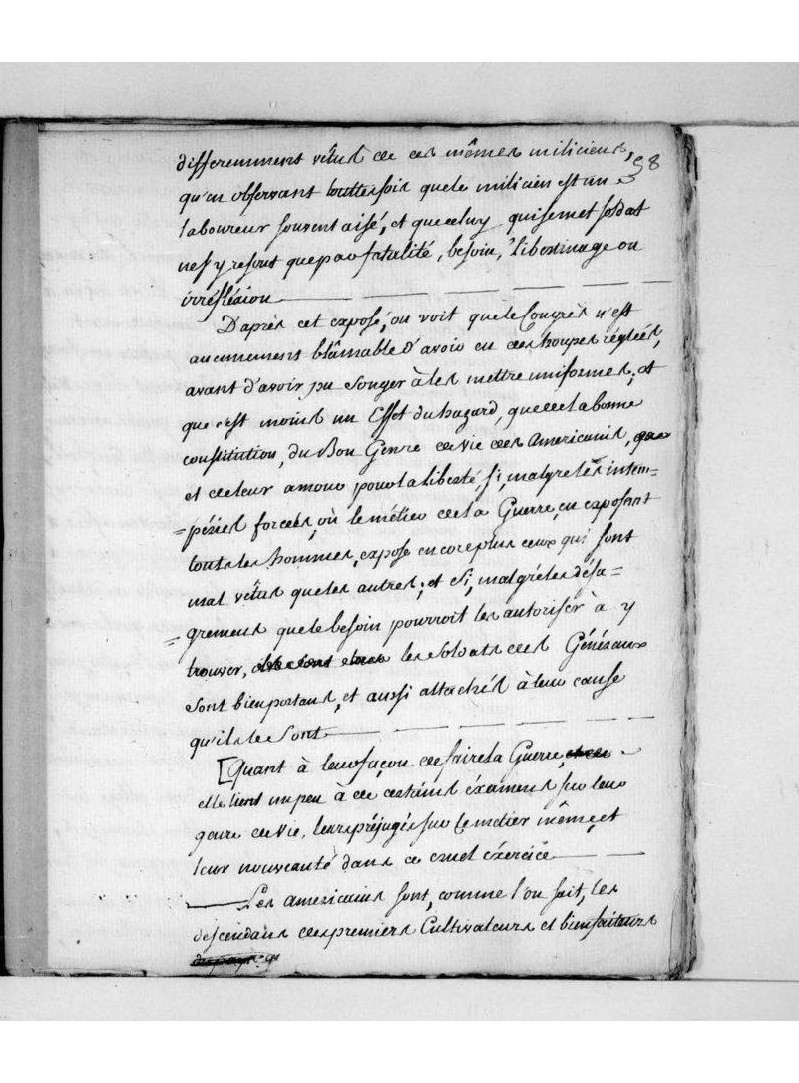 98
differemment vêtus de ces mêmes miliciens,
qu'en observant touttefois que le milicien est un
laboureur souvent aisé, et que celuy qui se met soldat
ne s'y resout que par fatalité, besoin, libertinage ou
irréfléxion
D'après cet exposé, on voit que le Congrès n'est
aucunement blâmable d'avoir eu des troupes réglées,
avant d'avoir pu songer à les mettre uniformes; et
que c'est moins un Effet du hazard, que de la bonne
constitution, du Bon Genre de vie des Americains, que
et de leur amour pour la liberté si, malgré les intem=
=péries forcées, où le métier de la Guerre, en exposant
tous les hommes, expose encore plus ceux qui sont
mal vêtus que les autres; et si, malgré les désa=
=gremens que le besoin pourroit les autoriser à y
trouver, les soldats des Généraux
sont bien portans, et aussi attachés à leur cause
qu'ils le sont
[Quant à leur façon de faire la Guerre,
elle tient un peu à de certains éxamens sur leur
genre de vie, leurs préjugés sur le métier même, et
leur nouveauté dans ce cruel éxercice
Les americains sont, comme l'on sait, les
descendans des premiers Cultivateurs et bienfaiteurs
du pays. q